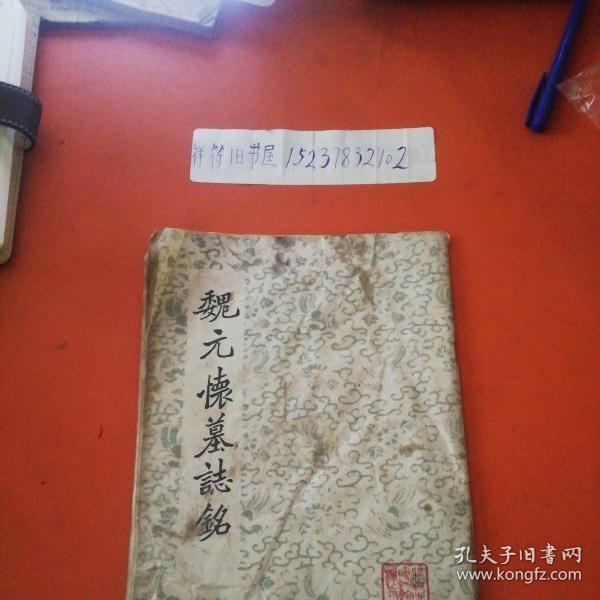 祥符旧书屋 15237832102
魏元懷墓誌銘
孔夫子旧書网
www.kongfz.com